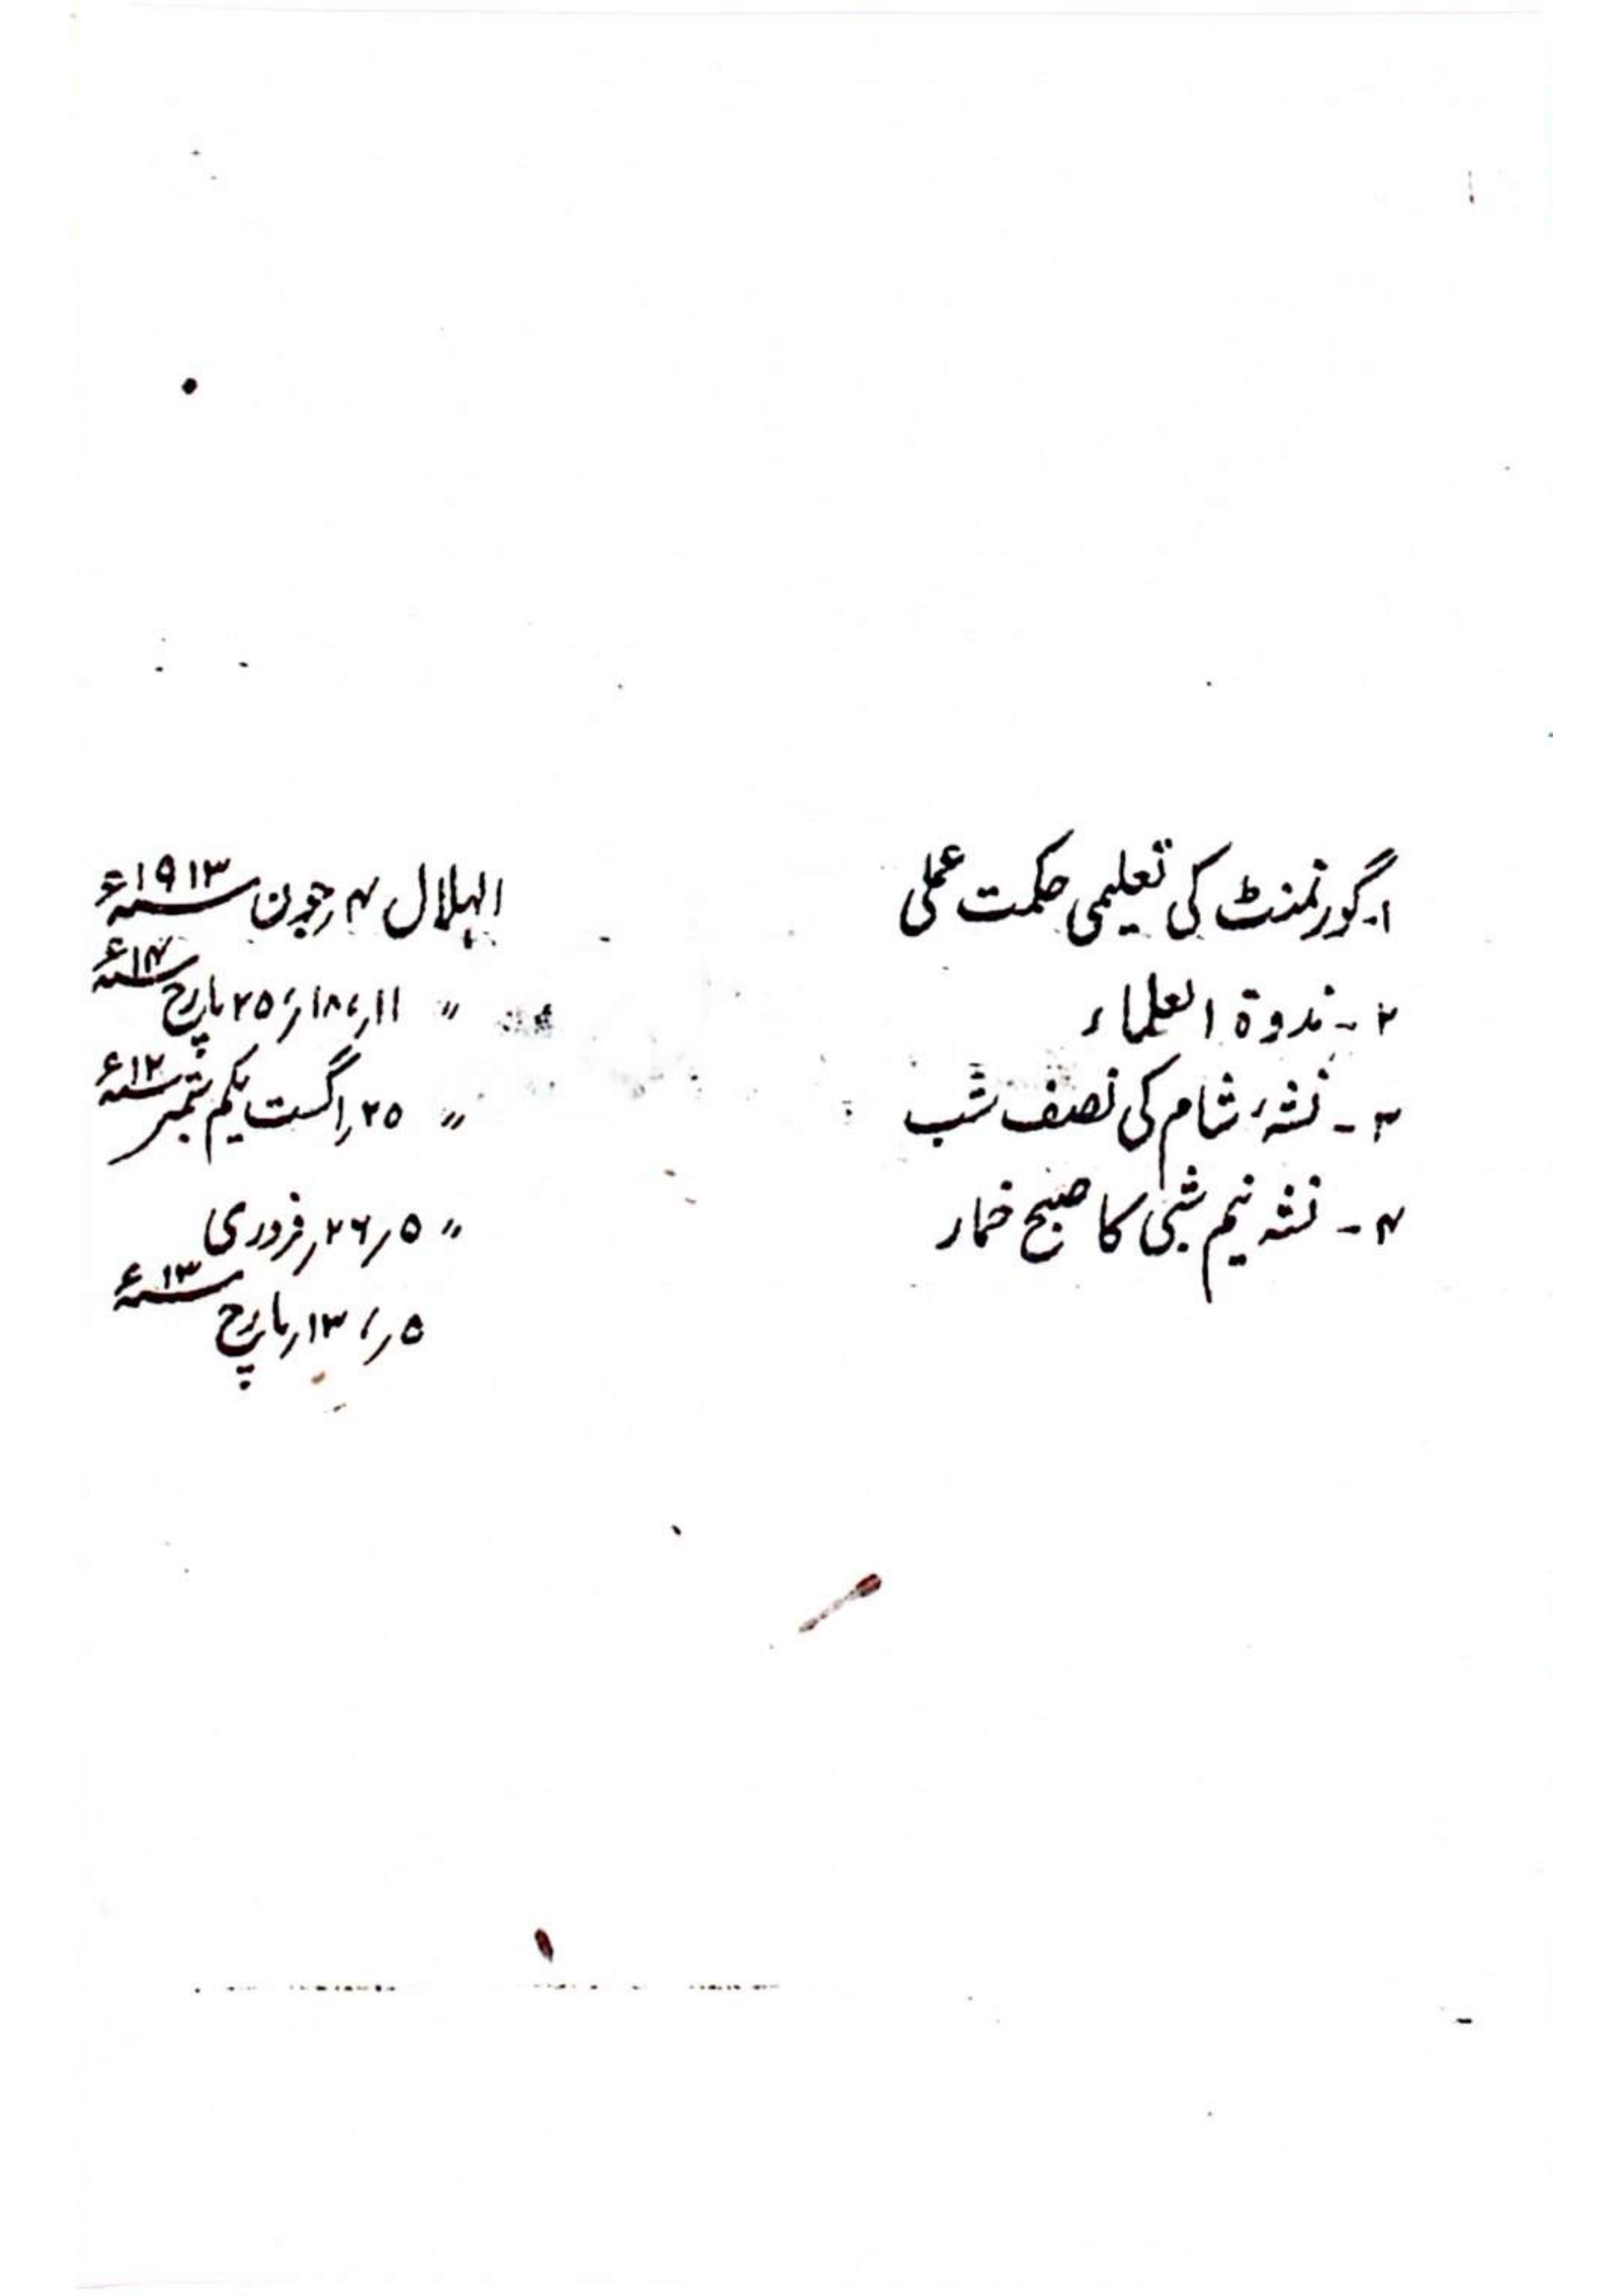 ۱۔ گورنمنٹ کی تعلیمی حکمت عملی الہلال ۴؍ جون سنہ ۱۹۱۳ء
۲۔ ندوۃ العلماء " ۱۱؍، ۱۸؍، ۲۵ مارچ سنہ ۱۴ء
۳۔ نشہ، شام کی نصف شب " ۲۵؍ اگست یکم ستمبر سنہ ۱۲ء
۴۔ نشہ نیم شبی کا صبح خمار " ۵؍ ۲۶؍ فروری
۵؍، ۱۳؍ مارچ سنہ ۱۳ء